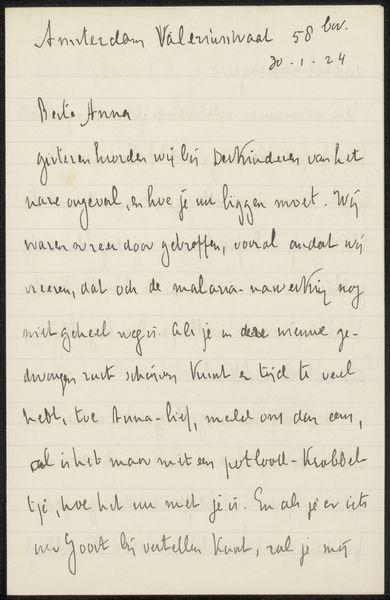 Amsterdam Valeriusstraat 58 bov.
30-1-24
Beste Anna
gisteren hoorden wij bij Derkinderen van het
nare ongeval, en hoe je nu liggen moet. Wij
waren er zeer door getroffen, vooral omdat wij
vreezen, dat ook de malaria-nawerking nog
niet geheel weg is. Als je in deze nieuwe ge-
dwongen rust schrijven kunt en tijd te veel
hebt, toe Anna-lief, meld ons dan eens,
al is het maar met een potlood-krabbel
tje, hoe het nu met je is. En als je er iets
over Goort bij vertellen kunt, zal je mij